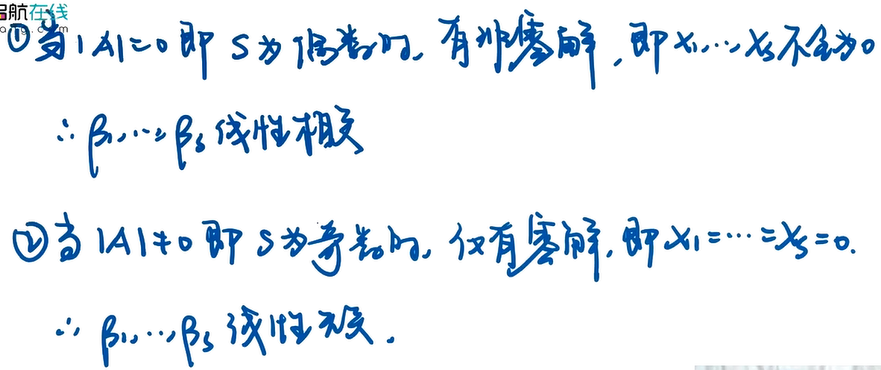 启航在线
①当|A|=0即S为偶数时,有非零解,即x₁,…,xₛ不全为0
∴β₁,…,βₛ线性相关
②当|A|≠0即S为奇数时,仅有零解,即x₁=…=xₛ=0.
∴β₁,…,βₛ线性无关.